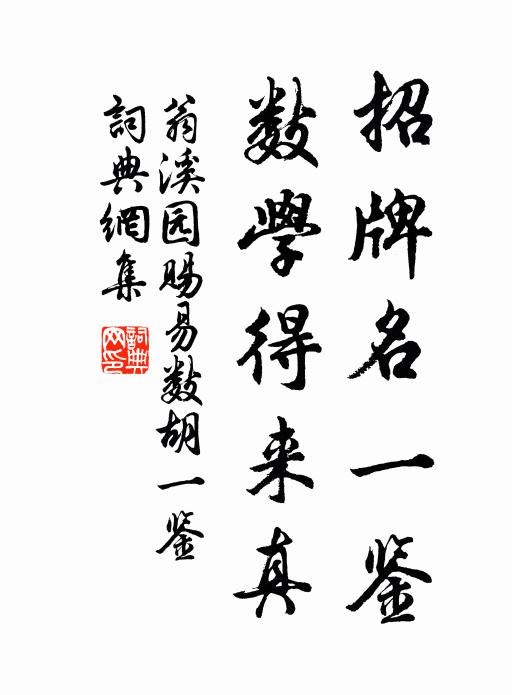 招牌名一鉴
数學得来真
翁溪园赐易数胡一鉴
詞典網集
詞典网印